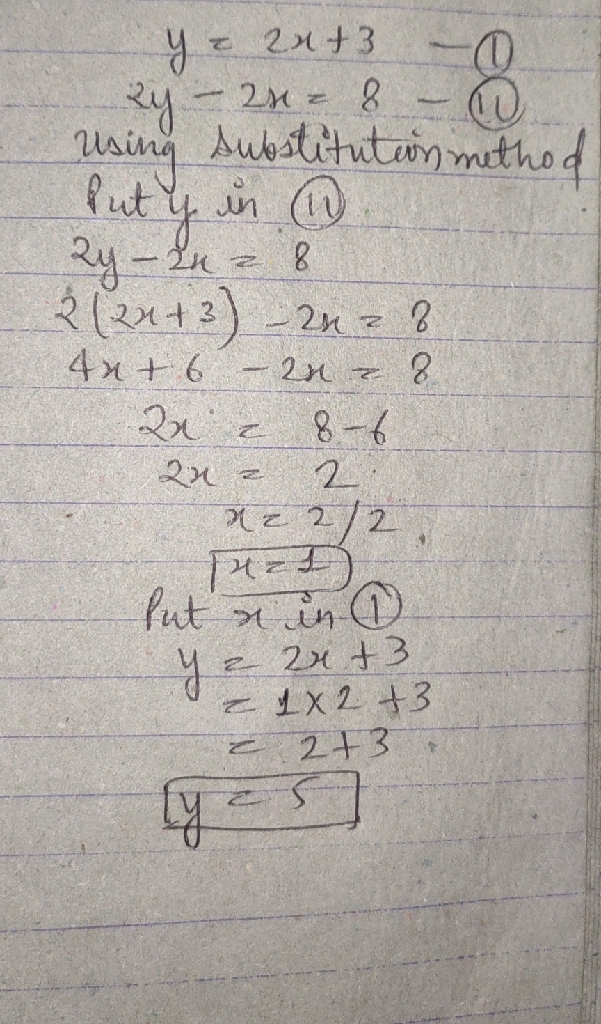 y = 2x+3 - ①
2y - 2x = 8 - ⑪
Using substitution method
Put y in ⑪
2y - 2x = 8
2(2x+3) - 2x = 8
4x + 6 - 2x = 8
2x = 8-6
2x = 2
x = 2/2
x = 1
Put x in ①
y = 2x + 3
= 1×2 +3
= 2+3
y = 5